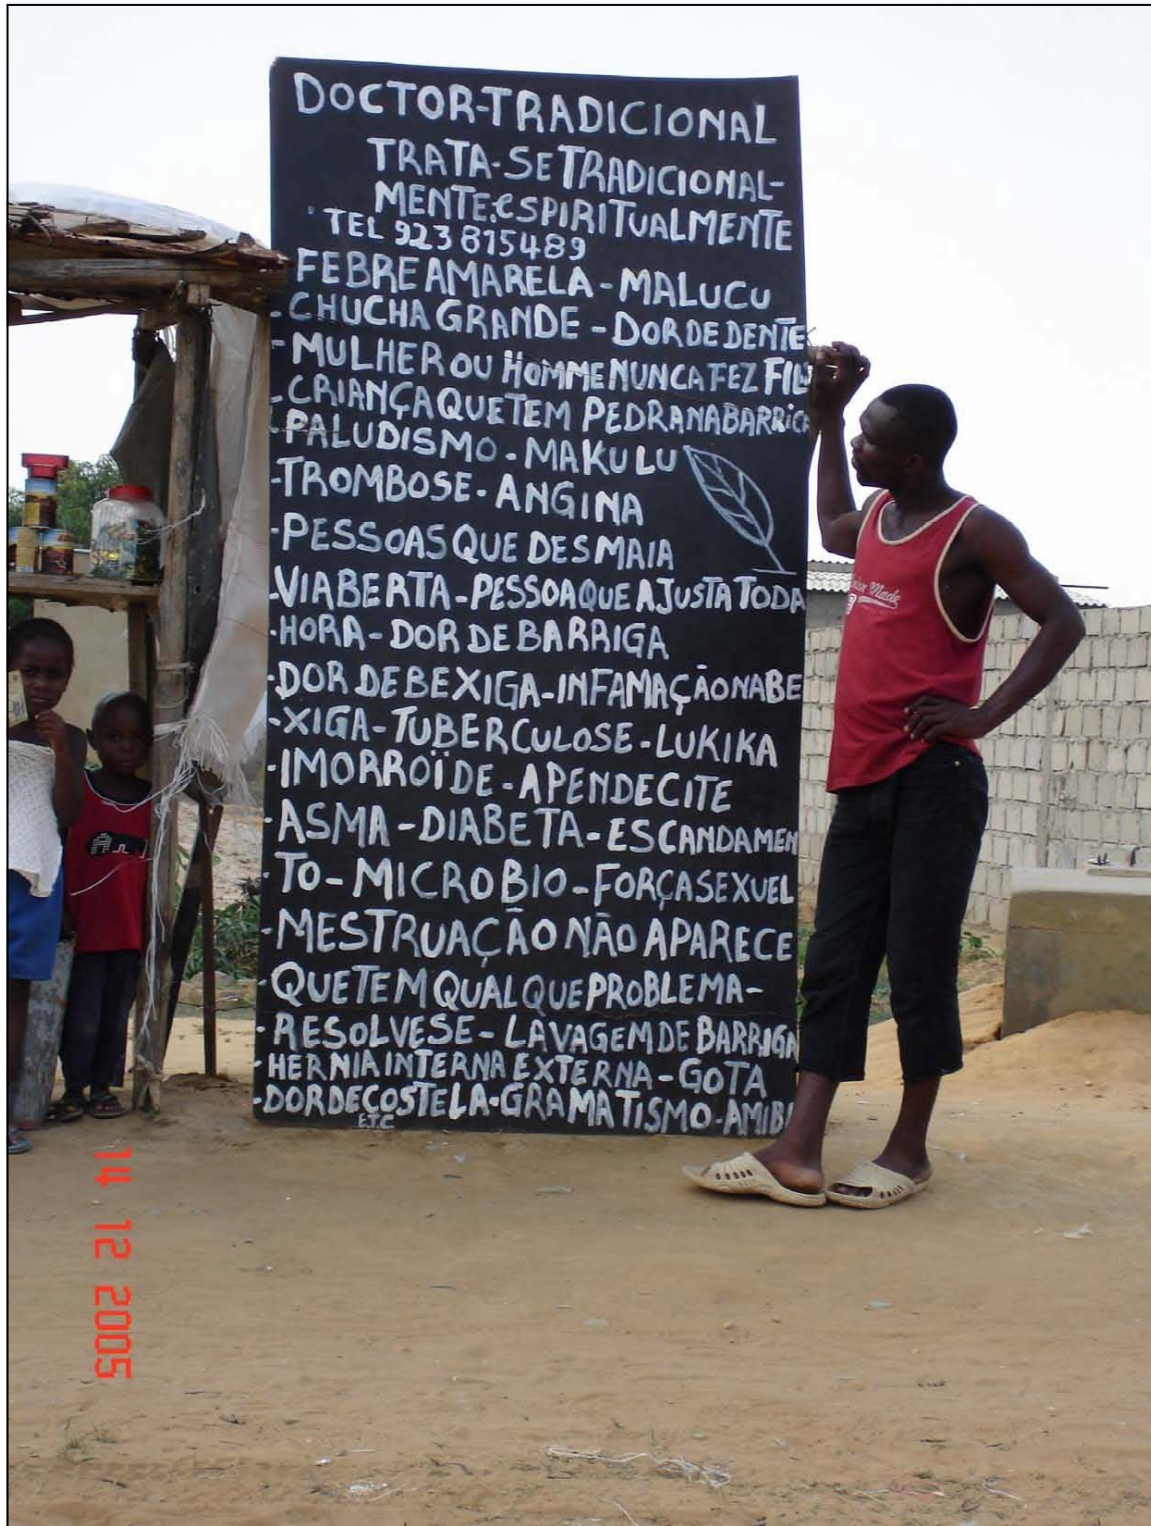 DOCTOR-TRADICIONAL
TRATA-SE TRADICIONAL-
MENTE.ESPIRITUALMENTE
TEL 923815489
FEBRE AMARELA - MALUCU
-CHUCHA GRANDE - DOR DE DENTE
-MULHER OU HOMME NUNCA FEZ FIL
-CRIANÇA QUE TEM PEDRA NA BARRIG
-PALUDISMO - MAKULU
-TROMBOSE - ANGINA
-PESSOAS QUE DESMAIA
-VIABERTA - PESSOA QUE AJUSTA TODA
-HORA - DOR DE BARRIGA
-DOR DE BEXIGA - INFAMAÇÃO NA BE
-XIGA - TUBERCULOSE - LUKIKA
-IMORROÏDE - APENDECITE
-ASMA - DIABETA - ESCANDAMEN
-TO - MICROBIO - FORÇA SEXUEL
-MESTRUAÇÃO NÃO APARECE
-QUE TEM QUALQUE PROBLEMA-
-RESOLVESE - LAVAGEM DE BARRIGA
-HERNIA INTERNA EXTERNA - GOTA
-DOR DE COSTELA - GRAMATISMO - AMIBI
ETC
14 12 2005